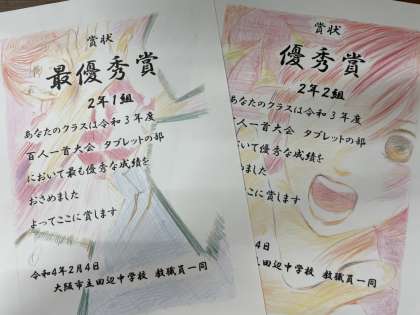 賞状
最優秀賞
2年1組
あなたのクラスは令和3年度
百人一首大会 タブレットの部
において最も優秀な成績を
おさめました
よってここに賞します
令和4年2月4日
大阪市立田辺中学校 教職員一同
賞状
優秀賞
2年2組
あなたのクラスは令和3年度
百人一首大会 タブレットの部
おいて優秀な成績を
めました
ってここに賞します
4日
立田辺中学校 教職員一同